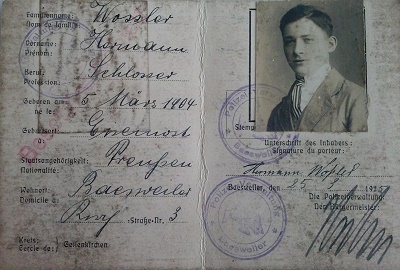 Familienname: Wossler
Nom de famille:
Vorname: Hermann
Prénom:
Beruf: Schlosser
Profession:
Geboren am 5. März 1904
né le:
Geburtsort
à:
Staatsangehörigkeit: Preußen
Nationalité:
Wohnort: Baesweiler
Domicile à
Straße Nr. 3
Kreis: Geilenkirchen
Cercle de:
Stempel
Unterschrift des Inhabers:
Signature du porteur:
Hermann
Baesweiler, den 25
Die Polizeiverwaltung:
Der Bürgermeister:
Polizeiverwaltung
Baesweiler
Polizeiverwaltung
Baesweiler